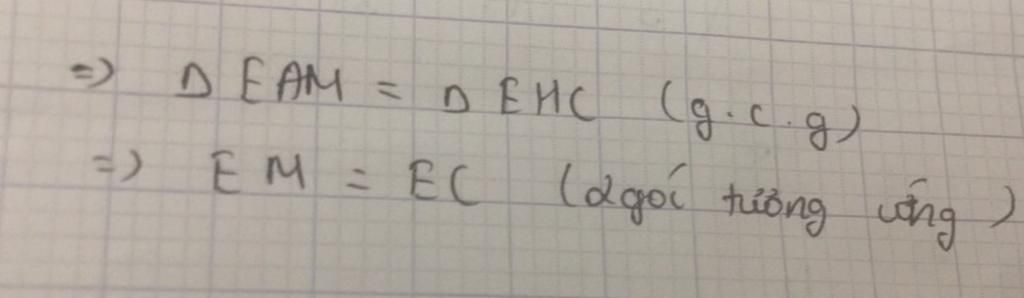 => Δ EAM = Δ EHC (g.c.g)
=> EM = EC (2 góc tương ứng)